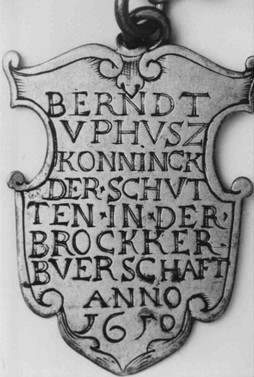 BERNDT
VPHVSZ
KONNINCK
DER·SCHVT
TEN·IN·DER·
BROCKKER-
BVERSCHAFT
ANNO
1650